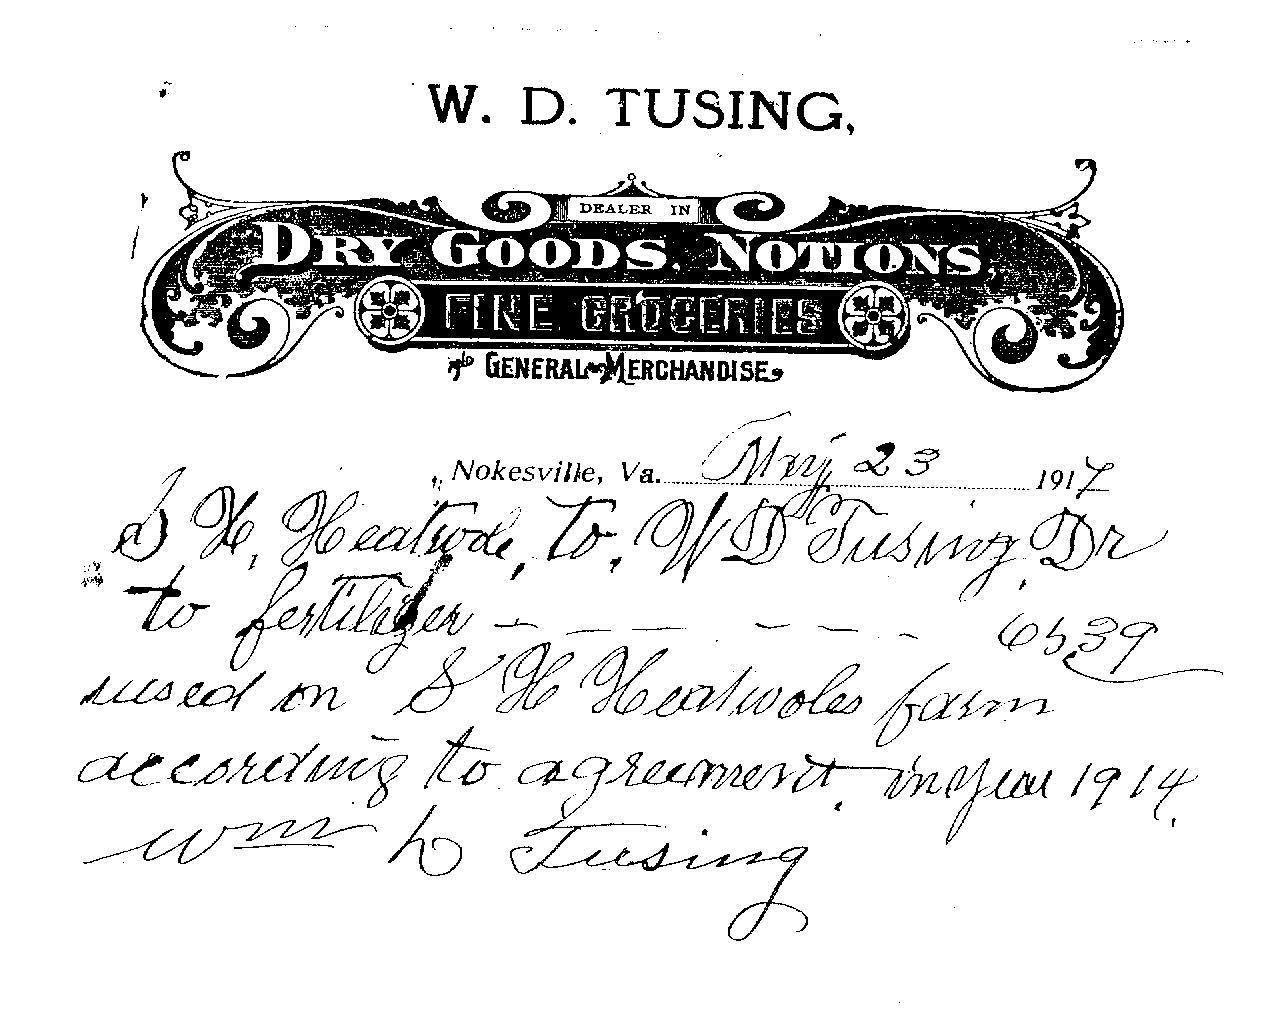 W. D. TUSING,
DEALER IN
DRY GOODS, NOTIONS
FINE GROCERIES
GENERAL MERCHANDISE
Nokesville, Va. May 23 1917
S H, Heatwole, to, W D Tusing Dr
to fertilizer — — — — — — 65.39
used on S H Heatwoles farm
according to agreement, in year 1914.
Wm D Tusing